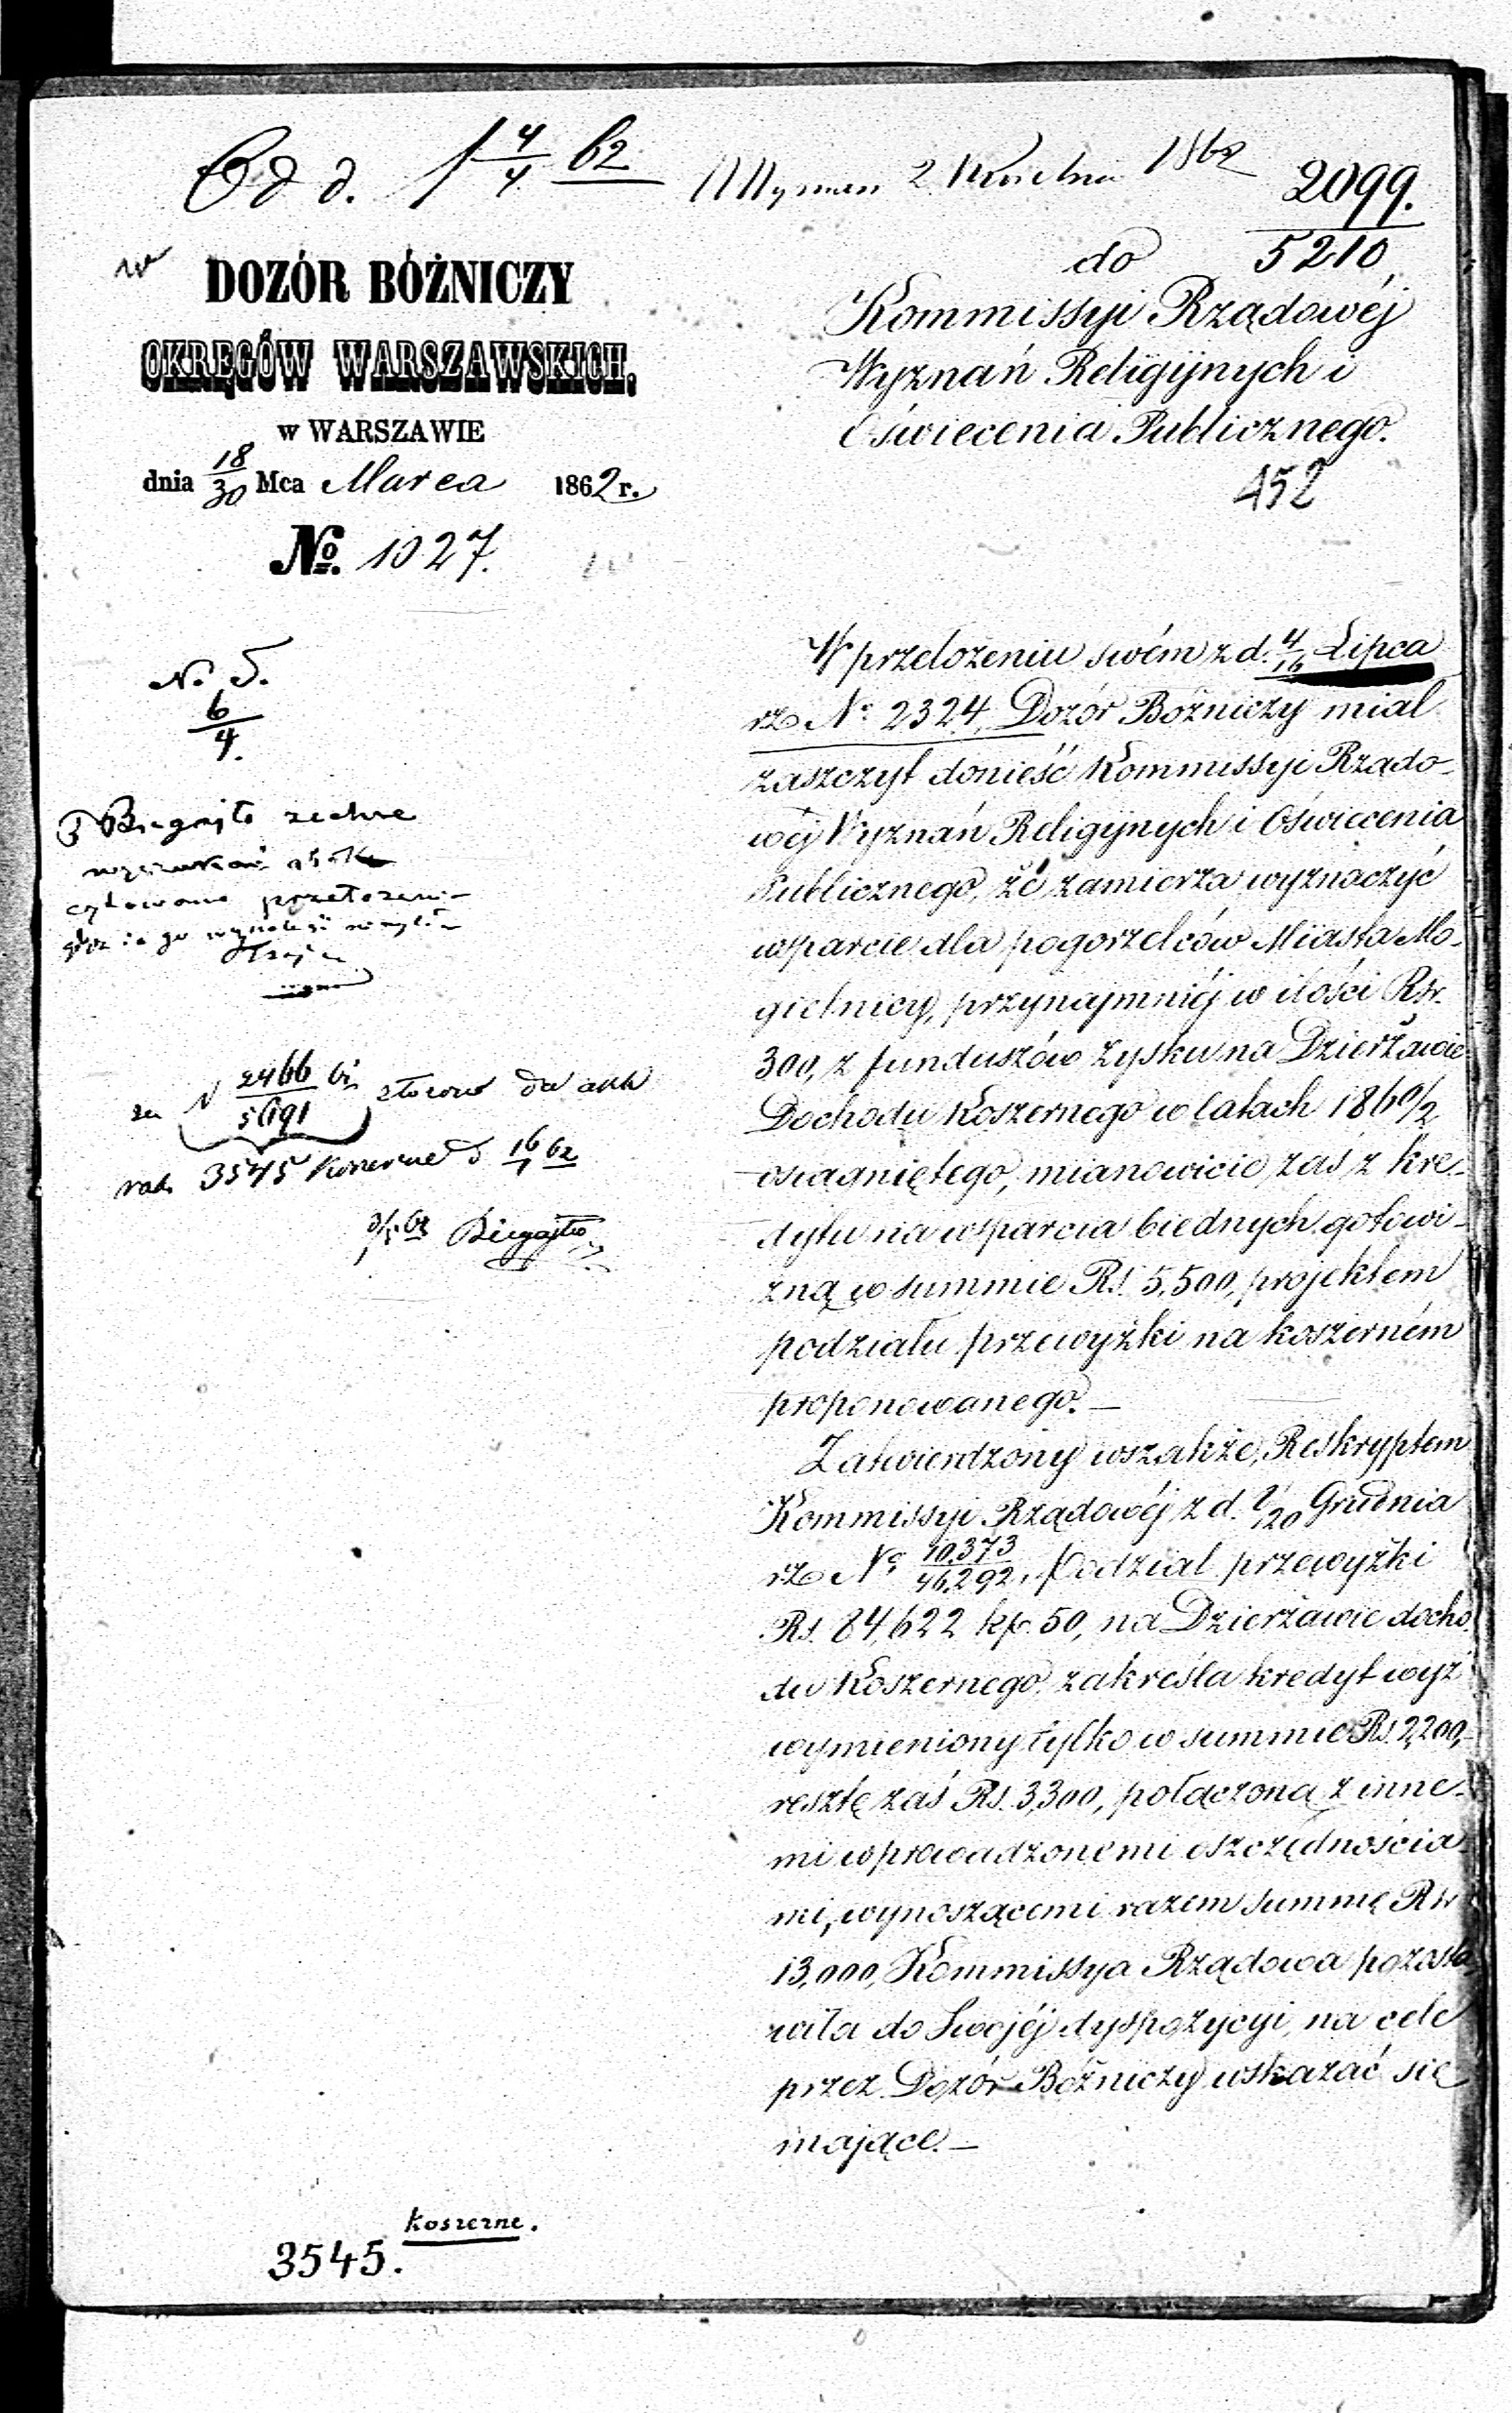 Od d. 4/4 62
2 Kwietnia 1862
2099.
5210
DOZÓR BÓŻNICZY
OKRĘGÓW WARSZAWSKICH.
w WARSZAWIE
dnia 18/30 Mca Marca 1862 r.
No. 1027.
do
Kommissyi Rządowéj
Wyznań Religijnych i
Oświecenia Publicznego.
452
N. 5.
6/4.
zechce
cytowane
N 2466/5691 62 do akt
3545 Koszerne d 16/1 62
Biegajło
W przełożeniu swém z d. 4/16 Lipca
rz No 2324, Dozór Bóżniczy miał
zaszczyt donieść Kommissyi Rządo-
wéj Wyznań Religijnych i Oświecenia
Publicznego, że zamierza wyznaczyć
wsparcie dla pogorzelców Miasta Mo-
gielnicy, przynajmniéj w ilości Rsr.
300, z funduszów zysku na Dzierżawie
Dochodu Koszernego w latach 1860/2
osiągniętego, mianowicie zaś z kre-
dytu na wsparcia biednych gotowi-
zną w summie Rs. 5,500, projektem
podziału przewyżki na koszerném
proponowanego. —
Zatwierdzony wszakże, Reskryptem
Kommissyi Rządowéj z d. /20 Grudnia
rz No 10,373/46,292, Podział przewyżki
Rs. 84,622 kp. 50, na Dzierżawie docho
du Koszernego zakreśla kredyt wyż
wymieniony tylko w summie Rs. 2,200,-
resztę zaś Rs. 3,300, połączoną z inne-
mi wprowadzonemi oszczędnościa-
mi, wynoszącemi razem summę Rsr
13,000, Kommissya Rządowa pozosta
wiła do Swojéj dyspozycyi, na cele
przez Dozór Bóżniczy wskazać się
mające. —
koszerne.
3545.